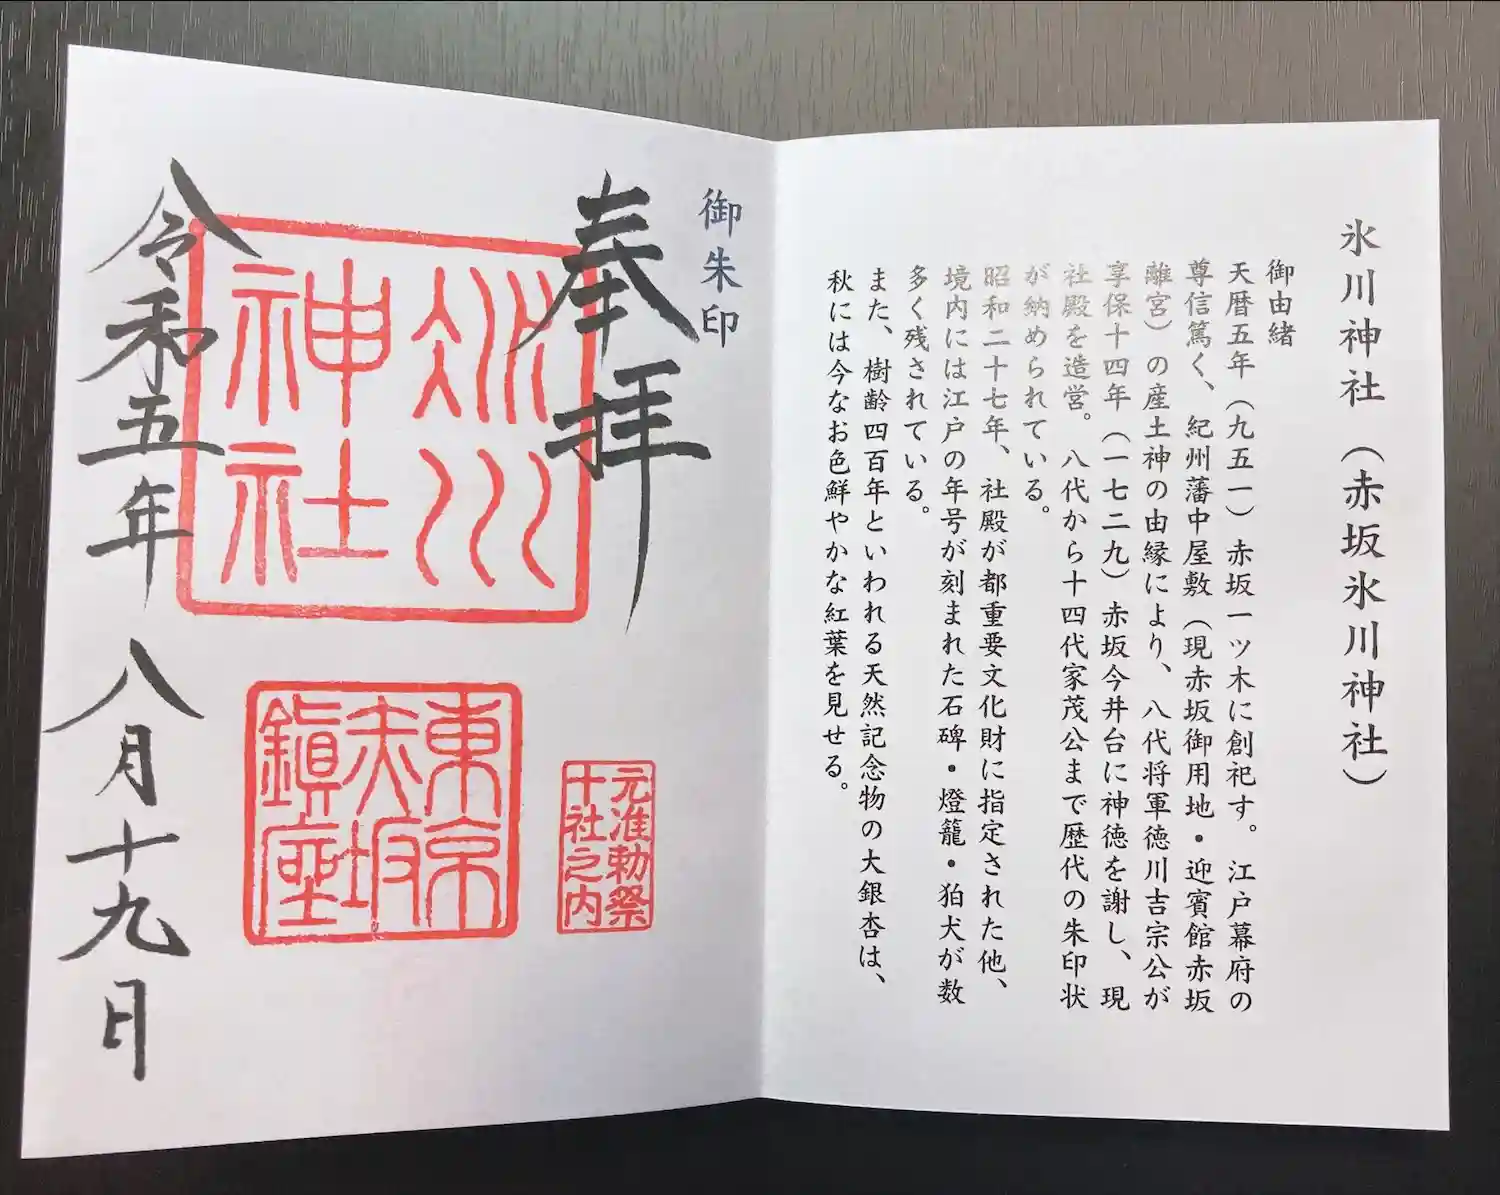 氷川神社（赤坂氷川神社）
御由緒
天暦五年（九五一）赤坂一ツ木に創祀す。江戸幕府の
尊信篤く、紀州藩中屋敷（現赤坂御用地・迎賓館赤坂
離宮）の産土神の由縁により、八代将軍徳川吉宗公が
享保十四年（一七二九）赤坂今井台に神徳を謝し、現
社殿を造営。八代から十四代家茂公まで歴代の朱印状
が納められている。
昭和二十七年、社殿が都重要文化財に指定された他、
境内には江戸の年号が刻まれた石碑・燈籠・狛犬が数
多く残されている。
また、樹齢四百年といわれる天然記念物の大銀杏は、
秋には今なお色鮮やかな紅葉を見せる。
御朱印
奉拝
氷川
神社
元准勅祭
十社之内
東京
赤坂
鎮座
令和五年八月十九日